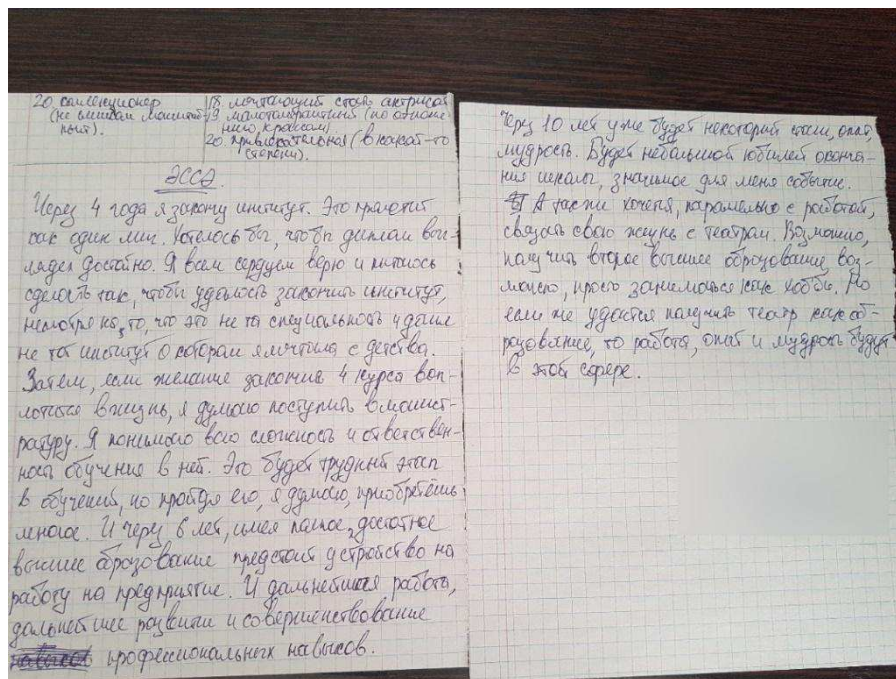 20. коллекционер
(не слишком масштаб-
ный).
18. мечтающий стать актрисой
19. малотолерантный (по отноше-
нию к рассам)
20. привлекательная (в какой-то
степени).
ЭССЭ.
Через 4 года я закончу институт. Это пролетит
как один миг. Хотелось бы, чтобы диплом выг-
лядел достойно. Я всем сердцем верю и пытаюсь
сделать так, чтобы удалось закончить институт,
несмотря на, то, что это не та специальность и даже
не тот институт о котором я мечтала с детства.
Затем, если желание закончить 4 курса воп-
лотится в жизнь, я думаю поступить в магист-
ратуру. Я понимаю всю сложность и ответствен-
ность обучения в ней. Это будет трудный этап
в обучений, но пройдя его, я думаю, приобретёшь
многое. И через 6 лет, имея полное, достойное
высшее образование предстоит устройство на
работу на предприятие. И дальнейшая работа,
дальнейшее развитие и совершенствование
профессиональных навыков.
Через 10 лет уже будет некоторый стаж, опыт,
мудрость. Будет небольшой юбилей оконча-
ния школы, значимое для меня событие.
А так же хочется, паралельно с работой,
связать свою жизнь с театром. Возможно,
получить второе высшее образование воз-
можно, просто заниматься как хобби. Но
если же удастся получить театр как об-
разование, то работа, опыт и мудрость будут
в этой сфере.